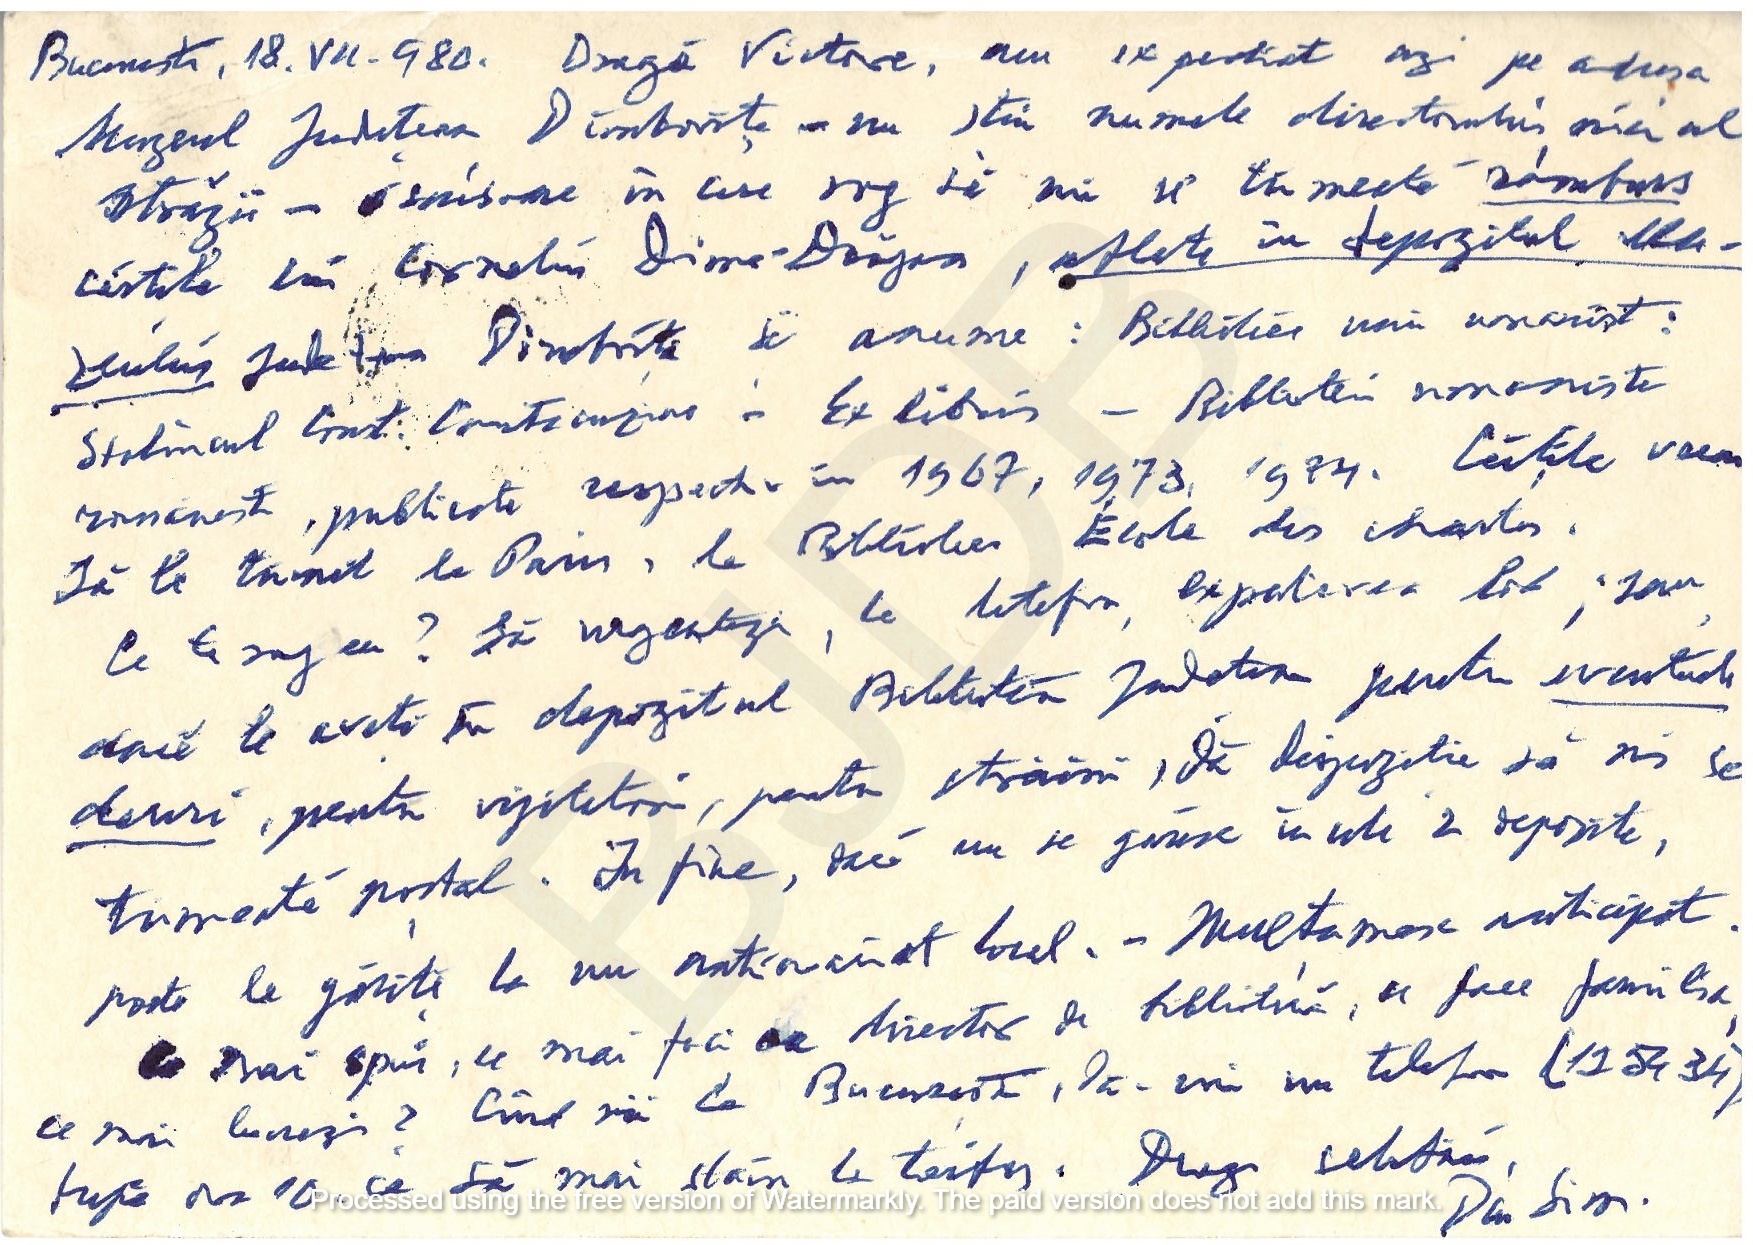 București, 18.VII.980. Dragă Victore, am expediat azi pe adresa
Muzeul Județean Dîmbovița – nu știu numele directorului, nici al
străzii – o scrisoare în care rog să mi se trimeată ramburs
cărțile lui Corneliu Dima-Drăgan, aflate în depozitul Mu-
zeului Județean Dîmbovița și anume: Biblioteca unui umanist:
Stolnicul Const. Cantacuzino și Ex libris – Biblioteci umaniste
românești, publicate respectiv în 1967, 1973, 1974. Cărțile vreau
să le trimet la Paris, la Biblioteca École des chartes.
Ce te rog eu? Să urgentezi, la telefon, expedierea lor; sau,
dacă le aveți în depozitul Bibliotecii Județene pentru eventuale
daruri, pentru vizitatori, pentru străini, dă dispoziție să mi se
trimeată poștal. În fine, dacă nu se găsesc în cele 2 depozite,
poate le găsiți la un anticariat local. – Mulțumesc anticipat.
Ce mai spui, ce mai faci ca director de bibliotecă, ce face familia,
ce mai lucrezi? Cînd vii la București, dă-mi un telefon (125434)
după ora 10 ca să mai stăm la taifas. Drag salutări,
Dan Sim.
Processed using the free version of Watermarkly. The paid version does not add this mark.
BJDB